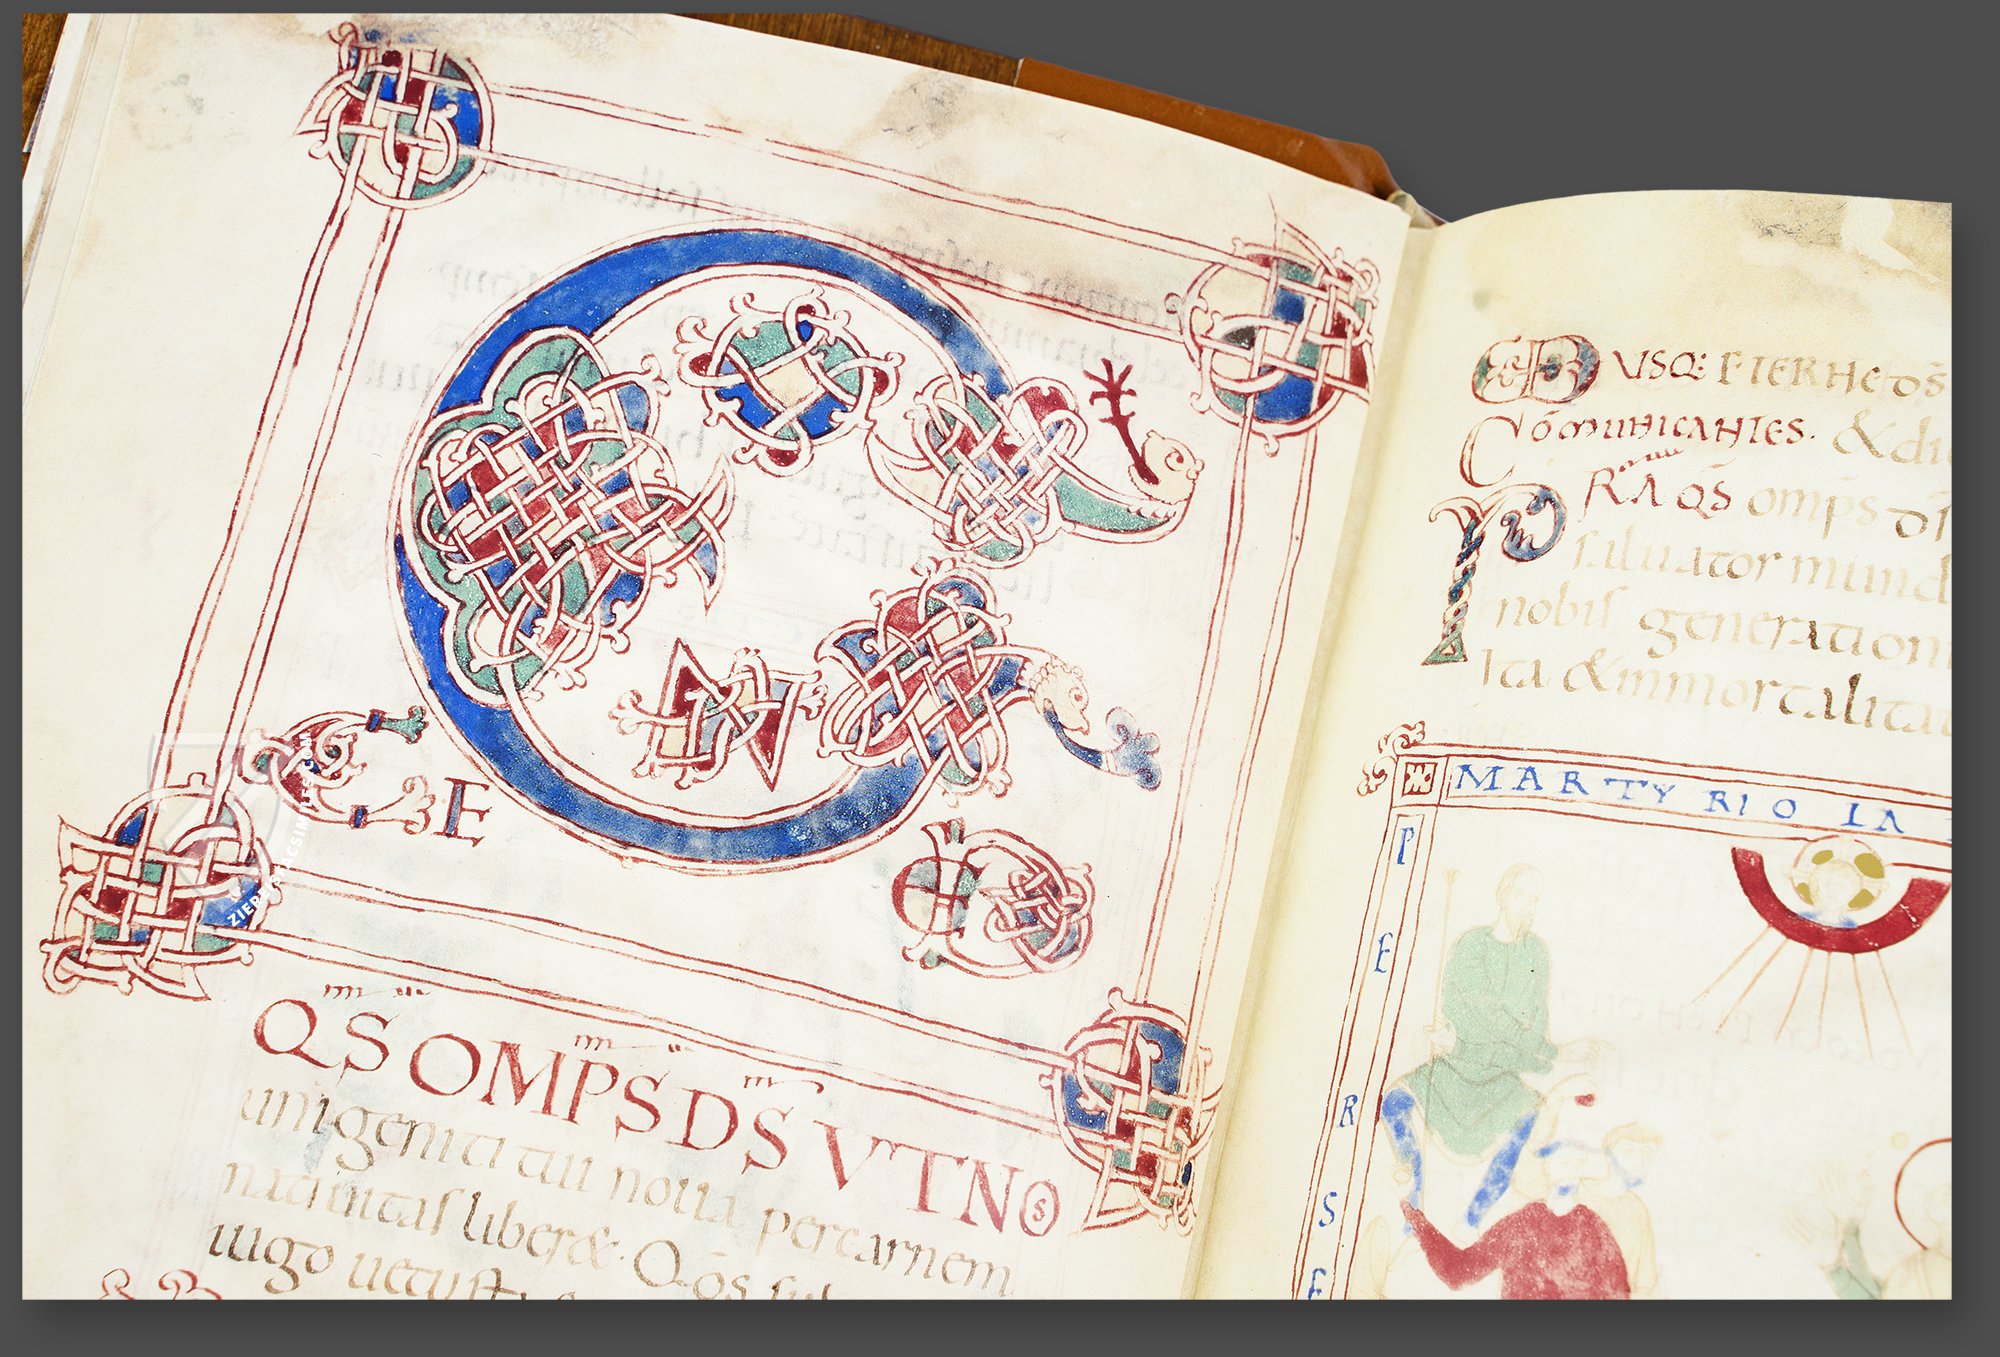 C
O
N
CE DE
QS OMPS DS VT NOS
unigeniti tui noua per carnem
natiuitas liber&. Qos sub
iugo uetusta
VSQ: FIERHE DS
COMUNICANTES. & di
PRA QS omps ds
saluator mund
nobis generation
ita & inmortalitat
MARTYRIO IA
PERSE